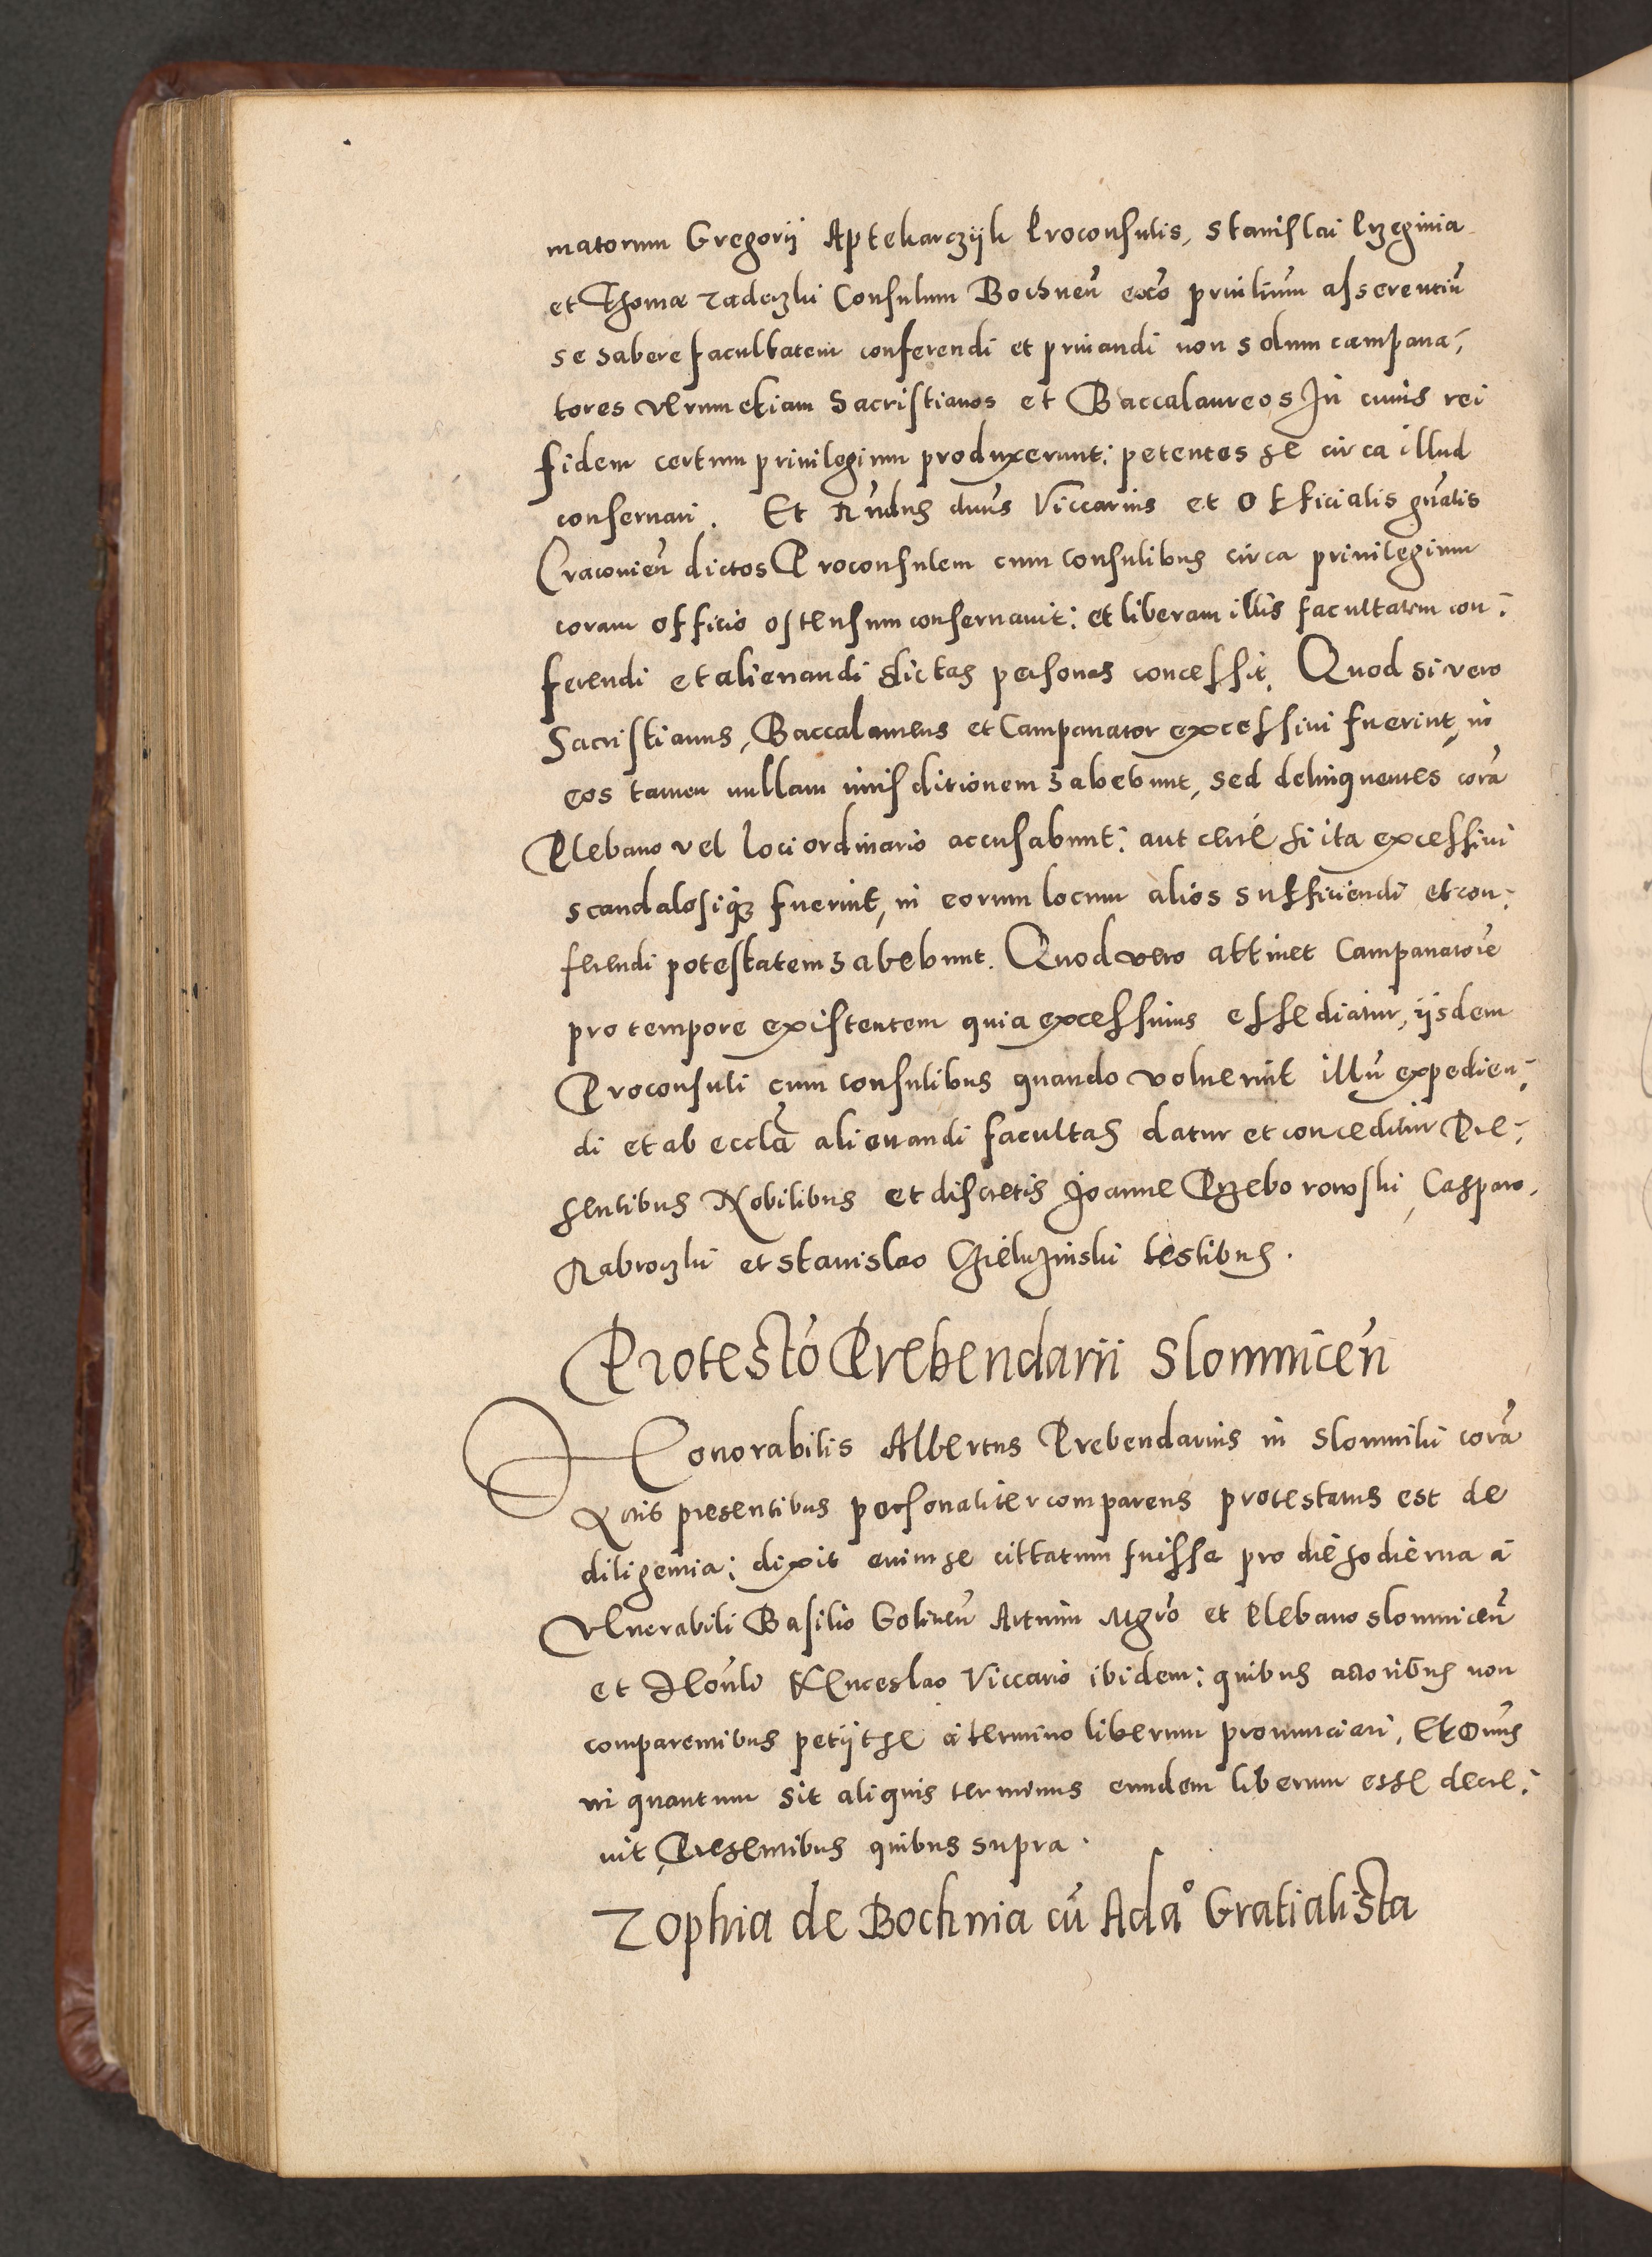 matorum Gregorii Aptekarczyk Proconsulis, Stanislai Przeginia
et Thomæ Zadeczki Consulum Bochneñ privilium asserentiũ
se habere facultatem conferendi et privandi non solum campana-
tores verum etiam Sacristianos et Baccalaureos In cuius rei
fidem certum privilegium produxerunt: petentes se circa illud
conservari. Et Rñdus dnus Viccarius et Officialis gñalis
Cracovieñ dictos Proconsulem cum Consulibus circa privilegium
coram officio ostensum conservavit: et liberam illis facultatem con-
ferendi et alienandi dictas personas concessit. Quod si vero
Sacristianus, Baccalaureus et Campanator excessivi fuerint, in
eos tamen nullam iurisditionem habebunt, sed delinquentes corã
Plebano vel loci ordinario accusabunt: aut certe si ita excessivi
scandalosiqz fuerint, in eorum locum alios sufficiendi et con-
ferendi potestatem habebunt. Quod vero attinet Campanatorẽ
pro tempore existentem quia excessivus esse dicitur, iisdem
Proconsuli cum Consulibus quando voluerint illũ expedien-
di et ab ecclã alienandi facultas datur et conceditur Pre-
sentibus Nobilibus et discretis Joanne Przeborowski, Casparo
Rabroczki et Stanislao Gieluzinski testibus.
Protestõ Prebendarii Slomniceñ
Honorabilis Albertus Prebendarius in Slomniki corã
Actis presentibus personaliter comparens protestatus est de
diligentia: dixit enim se cittatum fuisse pro die hodierna à
Venerabili Basilio Golineñ Artium Mgrõ et Plebano Slomniceñ
et Hoñli Venceslao Viccario ibidem: quibus actoribus non
comparentibus petiit se à termino liberum pronunciari, Et Dñus
in quantum sit aliquis terminus eundem liberum esse decre-
vit Presentibus quibus supra.
Zophia de Bochnia cũ Adão Gratialista